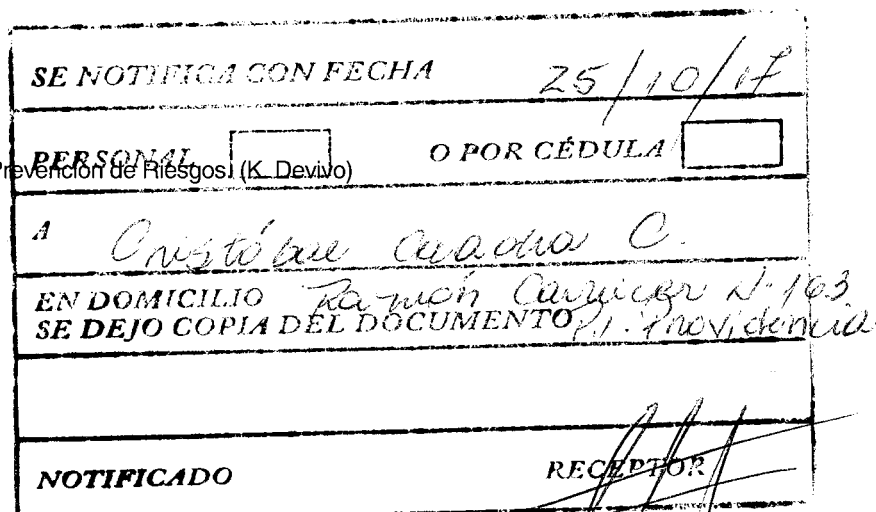 SE NOTIFICA CON FECHA 25/10/17
PERSONAL O POR CÉDULA
Prevención de Riesgos. (K. Devivo)
A Cristóbal Cuadra C.
EN DOMICILIO Ramón Carnicer N° 163
SE DEJO COPIA DEL DOCUMENTO P.1. Providencia
NOTIFICADO RECEPTOR